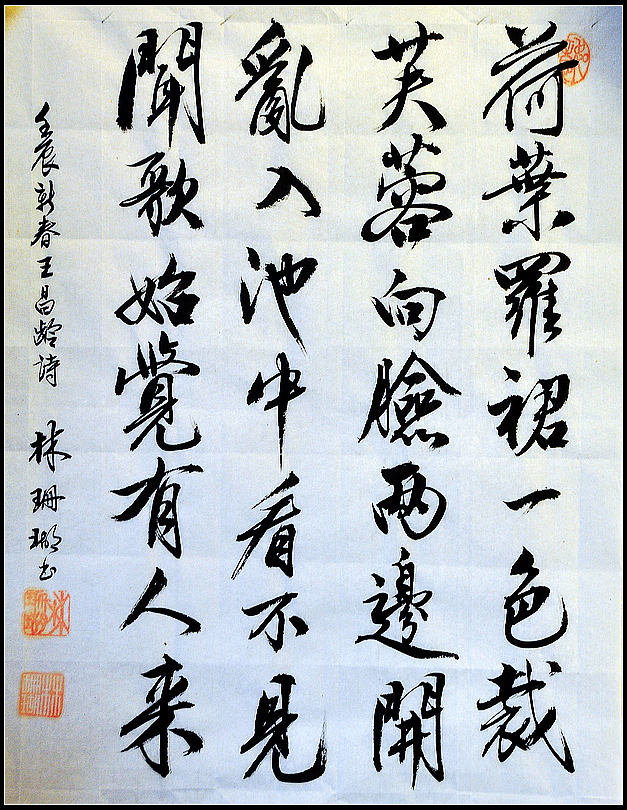 荷葉羅裙一色裁
芙蓉向臉兩邊開
亂入池中看不見
聞歌始覺有人来
壬辰新春王昌齡詩 林珊瑚书